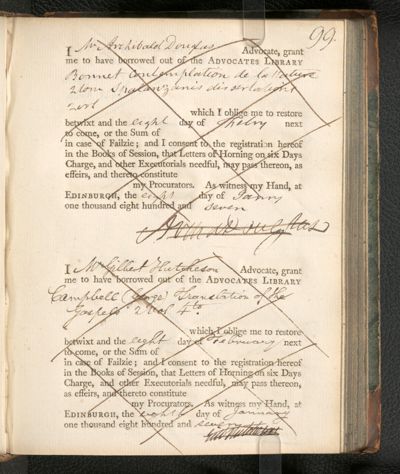 99.
I Mr Archibald Douglas Advocate, grant
me to have borrowed out of the ADVOCATES LIBRARY
Bonnet Contemplation de la Nature
2 tom Spalanzanis dissertations
2 vol
which I oblige me to restore
betwixt and the eight day of Febry next
to come, or the Sum of
in case of Failzie; and I consent to the registration hereof
in the Books of Session, that Letters of Horning on six Days
Charge, and other Executorials needful, may pass thereon, as
effeirs, and thereto constitute
my Procurators. As witness my Hand, at
EDINBURGH, the eight day of Janry
one thousand eight hundred and seven
I Mr Gilbert Hutcheson Advocate, grant
me to have borrowed out of the ADVOCATES LIBRARY
Campbell (George) Translation of the
Gospels 2 Vol 4to
which I oblige me to restore
betwixt and the eight day February next
to come, or the Sum of
in case of Failzie; and I consent to the registration hereof
in the Books of Session, that Letters of Horning on six Days
Charge, and other Executorials needful, may pass thereon,
as effeirs, and thereto constitute
my Procurators. As witness my Hand, at
EDINBURGH, the eighth day of January
one thousand eight hundred and seven